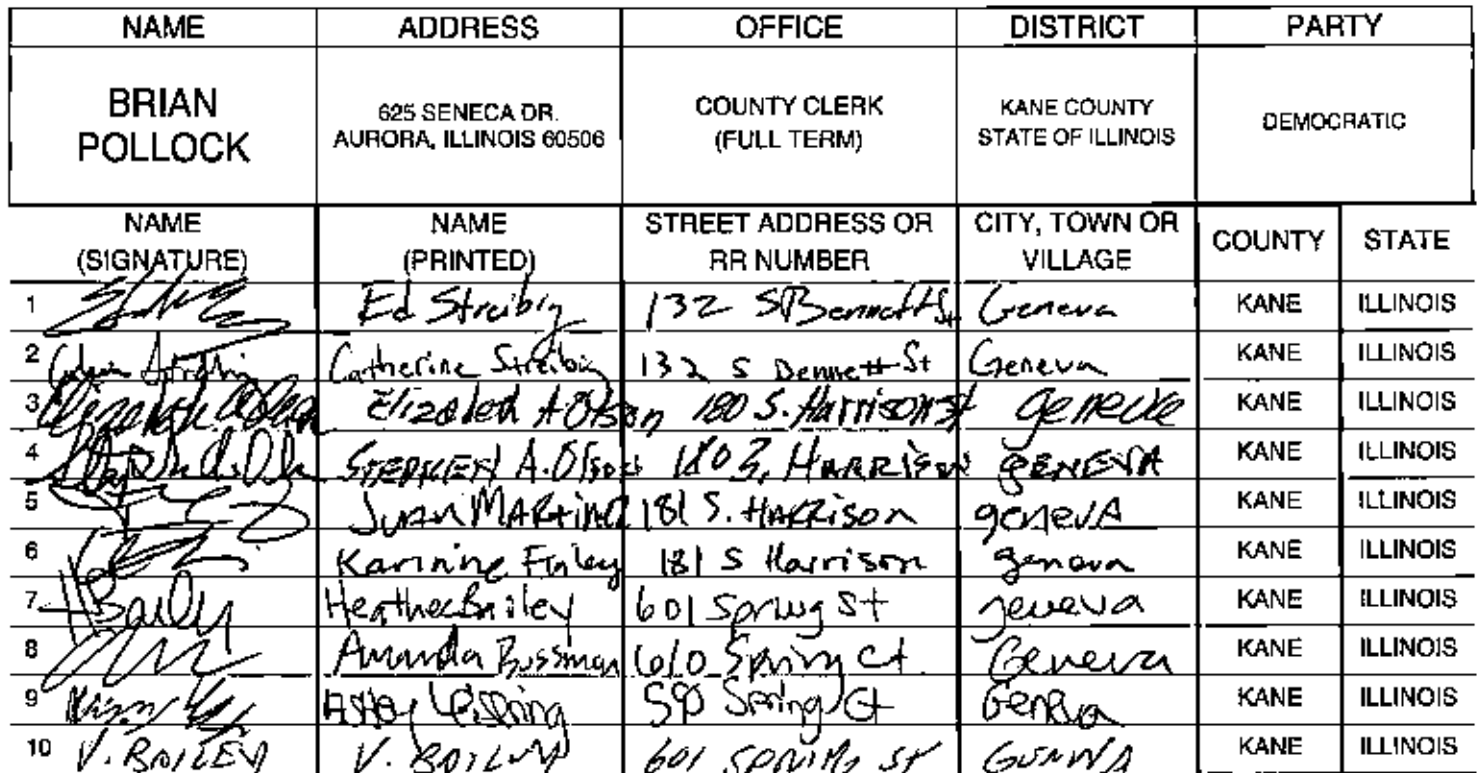 NAME ADDRESS OFFICE DISTRICT PARTY
BRIAN POLLOCK 625 SENECA DR. AURORA, ILLINOIS 60506 COUNTY CLERK (FULL TERM) KANE COUNTY STATE OF ILLINOIS DEMOCRATIC
NAME (SIGNATURE) NAME (PRINTED) STREET ADDRESS OR RR NUMBER CITY, TOWN OR VILLAGE COUNTY STATE
1 Ed Streibig 132 S Bennett St Geneva KANE ILLINOIS
2 Catherine Streibig 132 S Bennett St Geneva KANE ILLINOIS
3 Elizabeth A Olson 180 S. Harrison st KANE ILLINOIS
4 STEPHEN A. Olson 180 S. HARRISON GENEVA KANE ILLINOIS
5 JUAN MARTINEZ 181 S. HARRISON geneva KANE ILLINOIS
6 Finley 181 S Harrison geneva KANE ILLINOIS
7 HBaily Heather Bailey 601 Spring St geneva KANE ILLINOIS
8 Amanda Bussman 610 Spring Ct. Geneva KANE ILLINOIS
9 Spring Ct Geneva KANE ILLINOIS
10 V. BAILEY V. BAILEY 601 SPRING ST GENEVA KANE ILLINOIS